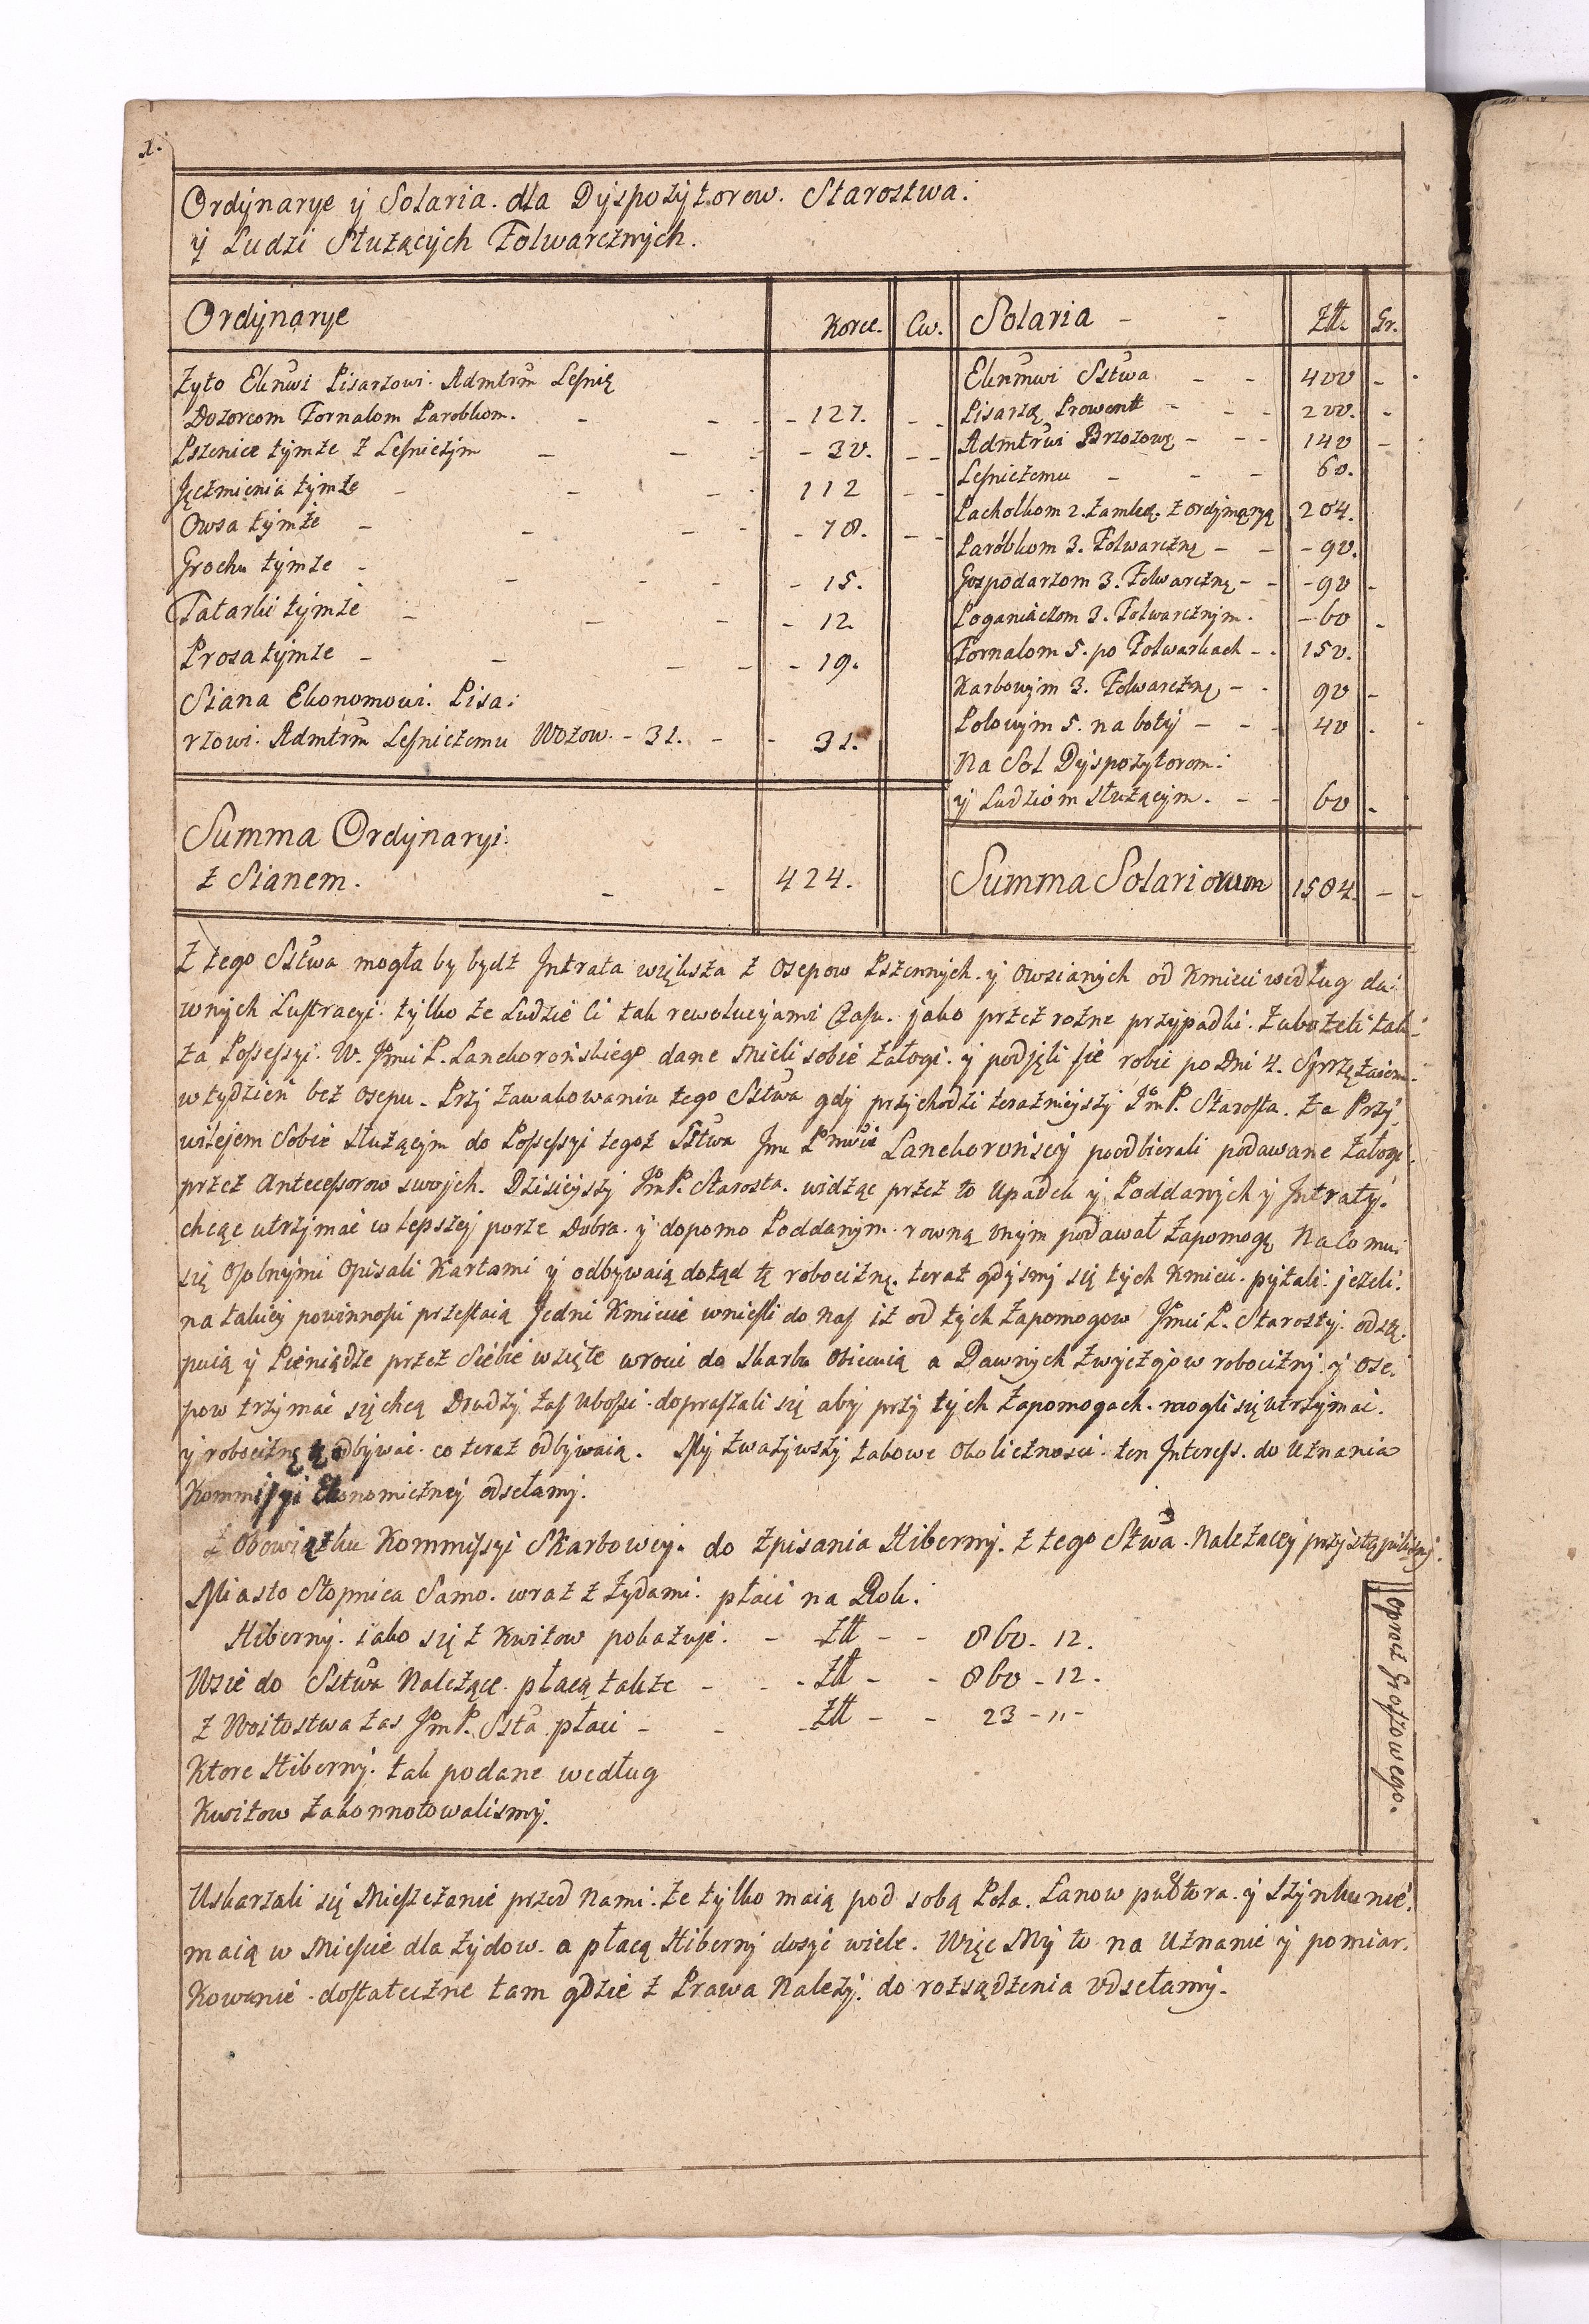 1.
Ordynarye y Solaria. dla Dyspozytorow. Starostwa.
y Ludzi Służących Folwarcznych.
Ordynarye Korce. Cw.
Żyto Eknŭwi Pisarzowi. Admtrŭm Leśnię
Dozorcom Fornalom Parobkom. - - - 127. - -
Pszenice tymże z Leśniczym - - - 30. - -
Jęczmienia tymże - - - 112 - -
Owsa tymże - - - - 78. - -
Grochu tymże - - - - 15.
Tatarki tymże - - - - 12
Prosa tymże - - - - 19.
Siana Ekonomowi. Pisa:
rzowi. Admtrŭm Leśniczemu Wozow. - 31. - - 31.
Summa Ordynaryi.
z Sianem. - - 424.
Solaria - - Złł. Gr.
Eknmŭwi Sstwa - - 400 -
Pisarzą Prowentt - - - 200. -
Admtrŭwi Brzozowę - - - 140 -
Leśniczemu - - - 60.
Pachołkom 2. Zamką. z ordynaryą 204.
Parobkom 3. Folwarcznę - - - 90.
Gospodarzom 3. Folwarcznę - - - 90 -
Poganiaczom 3. Folwarcznym. - 60 -
Fornalom 5. po Folwarkach - - 150.
Karbowym 3. Folwarcznę - - 90 -
Polowym 5. na boty - - - 40 -
Na Sol Dyspozytorom.
y Ludziom służącym. - - 60 -
Summa Solariorum 1584. - -
Z tego Sstwa mogła by bydz Jntrata większa z Osepow Pszennych. y Owsianych od Kmieci według da:
wnych Lustracyi. tylko że Ludzie ci tak rewolucyjami Czasu. jako przez rożne przypadki. Zubożeli tak
za Possessyi. W. Jmci P. Lanckorońskiego dane mieli sobie załogi. y podjęli sie robic po Dni 4. Sprzężaiem
w tydzień bez Osepu. Przy zawakowaniu tego Sstwa gdy przychodzi teraznieyszy JmP. Starosta. za Przy:
wilejem Sobie służącym do Possessyi tegoż Sstwa Jmc Pnwie Lanckorońscy poodbierali podawane załogi.
przez Antecessorow swojch. Dzisieyszy JmP. Starosta. widząc przez to Upadek y Poddanych y Jntraty.
chcąc utrzymać w lepszey porze Dobra. y dopomo Poddanym. rowną onym podawał zapomogę Na co mu:
się Osobnymi Opisali Kartami y odbywaią dotąd tę robociznę. teraz gdysmy się tych Kmieci. pytali. jeżeli.
na takiey powinnosci przestaią Jedni Kmiecie wniesli do nas iż od tych zapomogow Jmci P. Starosty. odstę.
puią y Pieniądze przez Siebie wzięte wroci do skarbu obiecuią a Dawnych zwyczajow robocizny. y ose:
pow trzymać się chcą Drudzy zas ubossi. dopraszali się aby przy tych zapomogach. mogli się utrzymać.
y robociznę tę odbywać. co teraz odbywaią. My zważywszy takowe Okolicznosci. ten Jnteress. do Uznania
Kommissyi Ekonomiczney odsełamy.
Z Obowiązku Kommissyi Skarbowey. do zpisania Hiberny. z tego Stwa. Należącey przystąpilismy.
Miasto Stopnica Samo. wraz z żydami. płaci na Rok.
Hiberny. iako się z Kwitow pokazuje. - Złł - - 860 - 12.
Wsie do Sstwa Należące. płacą także - - - Złł - - 860 - 12.
Z Woitostwa zas JmP. Ssta. płaci - - Złł - - 23 - " -
Ktore Hiberny. tak podane według
Kwitow zakonnotowalismy.
oproż Groszowego.
Uskarzali się Mieszczanie przed Nami. że tylko maią pod sobą Pola. Łanow pułtora. y szynku nie
maią w Miescie dla żydow. a płacą Hiberny dosyć wiele. Więc My to na Uznanie y pomiar.
Kowanie. dostateczne tam gdzie z Prawa Należy. do rozsądzenia odsełamy.